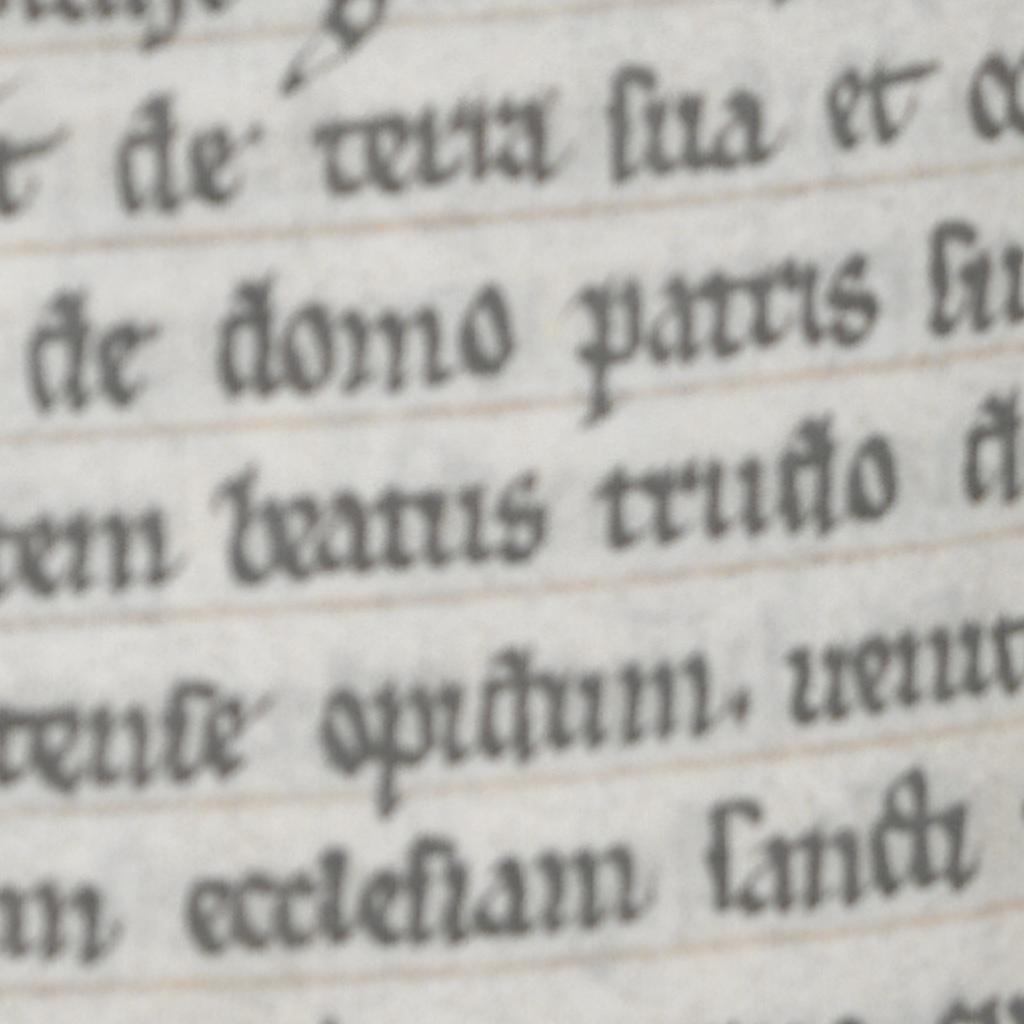 de terra sua et
de domo patris
beatus trudo
opidum. uenit
ecclesiam sancti